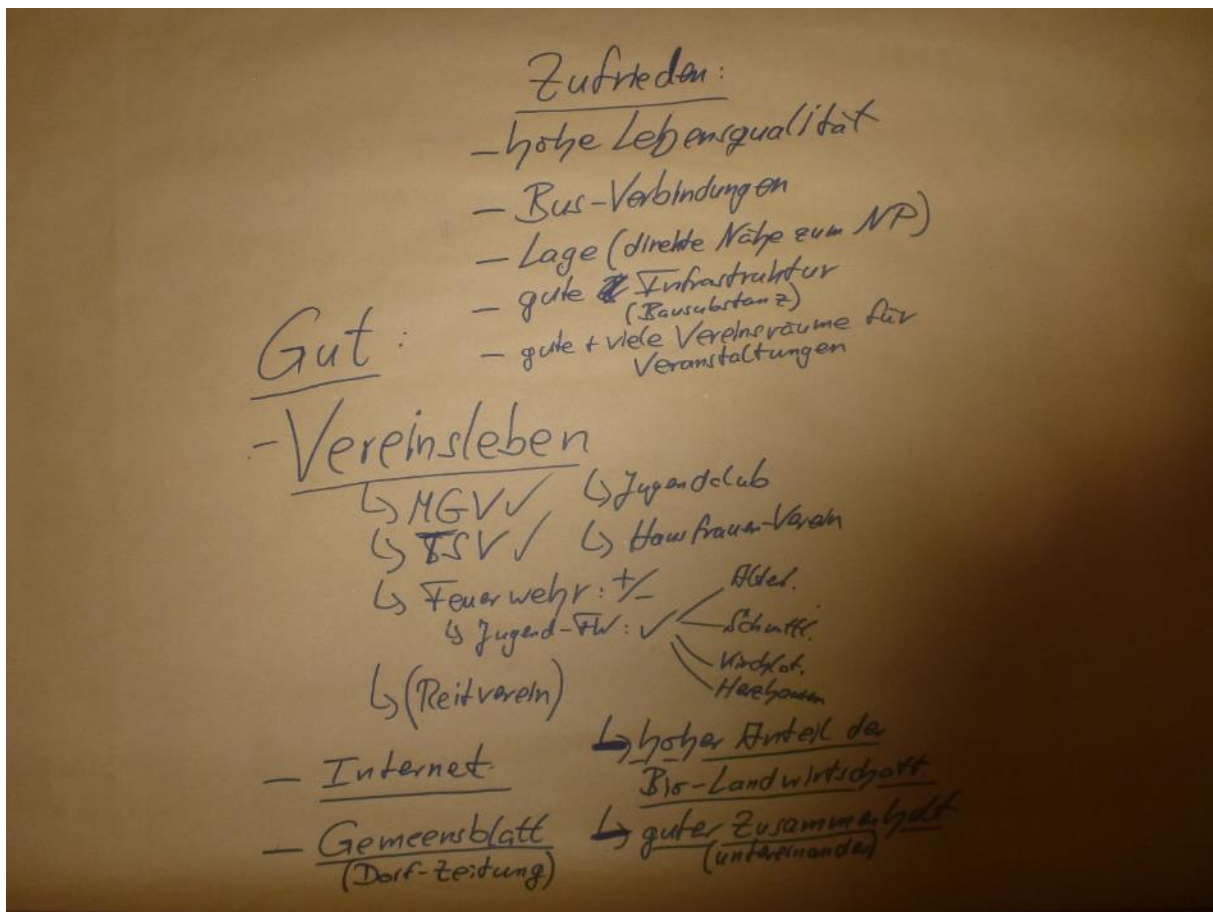 Zufrieden:
– hohe Lebensqualität
– Bus-Verbindungen
– Lage (direkte Nähe zum NP)
– gute Infrastruktur
(Bausubstanz)
– gute + viele Vereinsräume für
Veranstaltungen
Gut:
- Vereinsleben
↳ MGV ✓
↳ TSV ✓
↳ Feuerwehr: +/-
↳ Jugend-FW: ✓
Schmittl.
Kirchlot.
Herzhausen
↳ (Reitverein)
↳ Jugendclub
↳ Hausfrauen-Verein
– Internet
– Gemeensblatt
(Dorf-Zeitung)
↳ hoher Anteil der
Bio-Landwirtschaft
↳ guter Zusammenhalt
(untereinander)